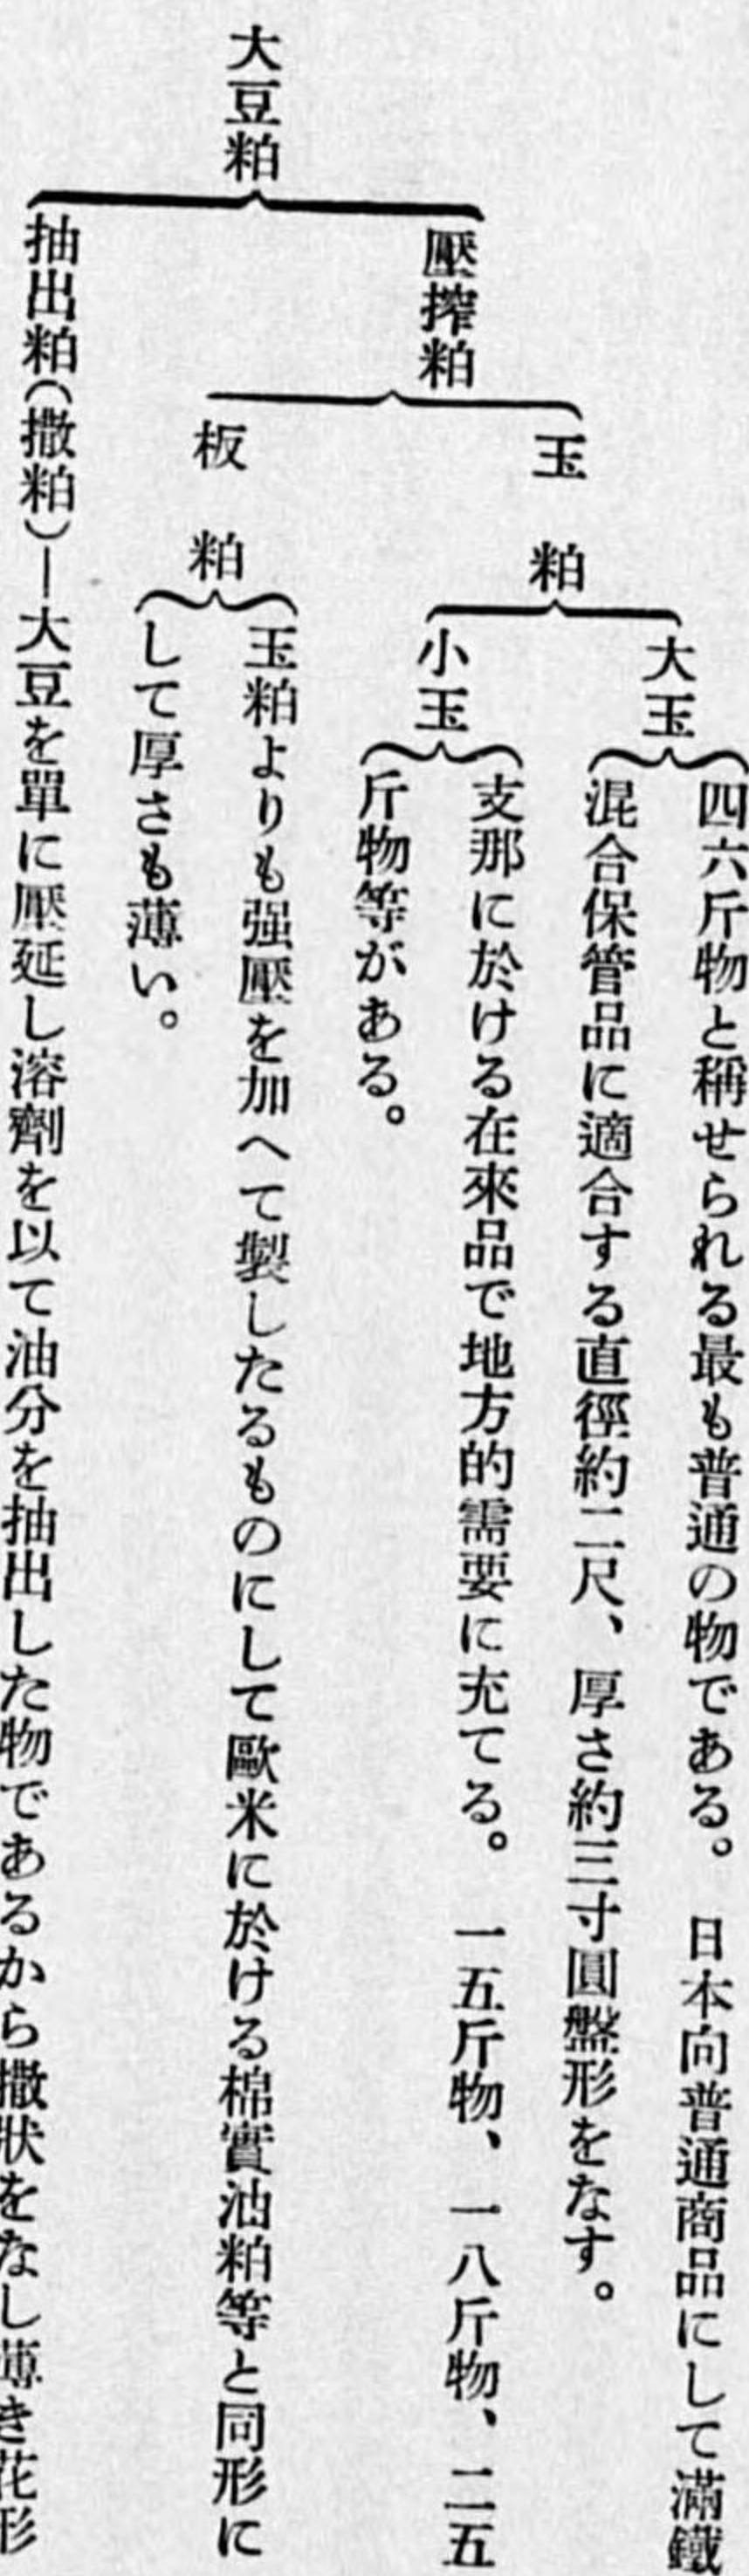 大豆粕
壓搾粕
玉粕
大玉
四六斤物と稱せられる最も普通の物である。日本向普通商品にして滿鐵
混合保管品に適合する直徑約二尺、厚さ約三寸圓盤形をなす。
小玉
支那に於ける在來品で地方的需要に充てる。一五斤物、一八斤物、二五
斤物等がある。
板粕
玉粕よりも强壓を加へて製したるものにして歐米に於ける棉實油粕等と同形に
して厚さも薄い。
抽出粕(撒粕)―大豆を單に壓延し溶劑を以て油分を抽出した物であるから撒狀をなし薄き花形